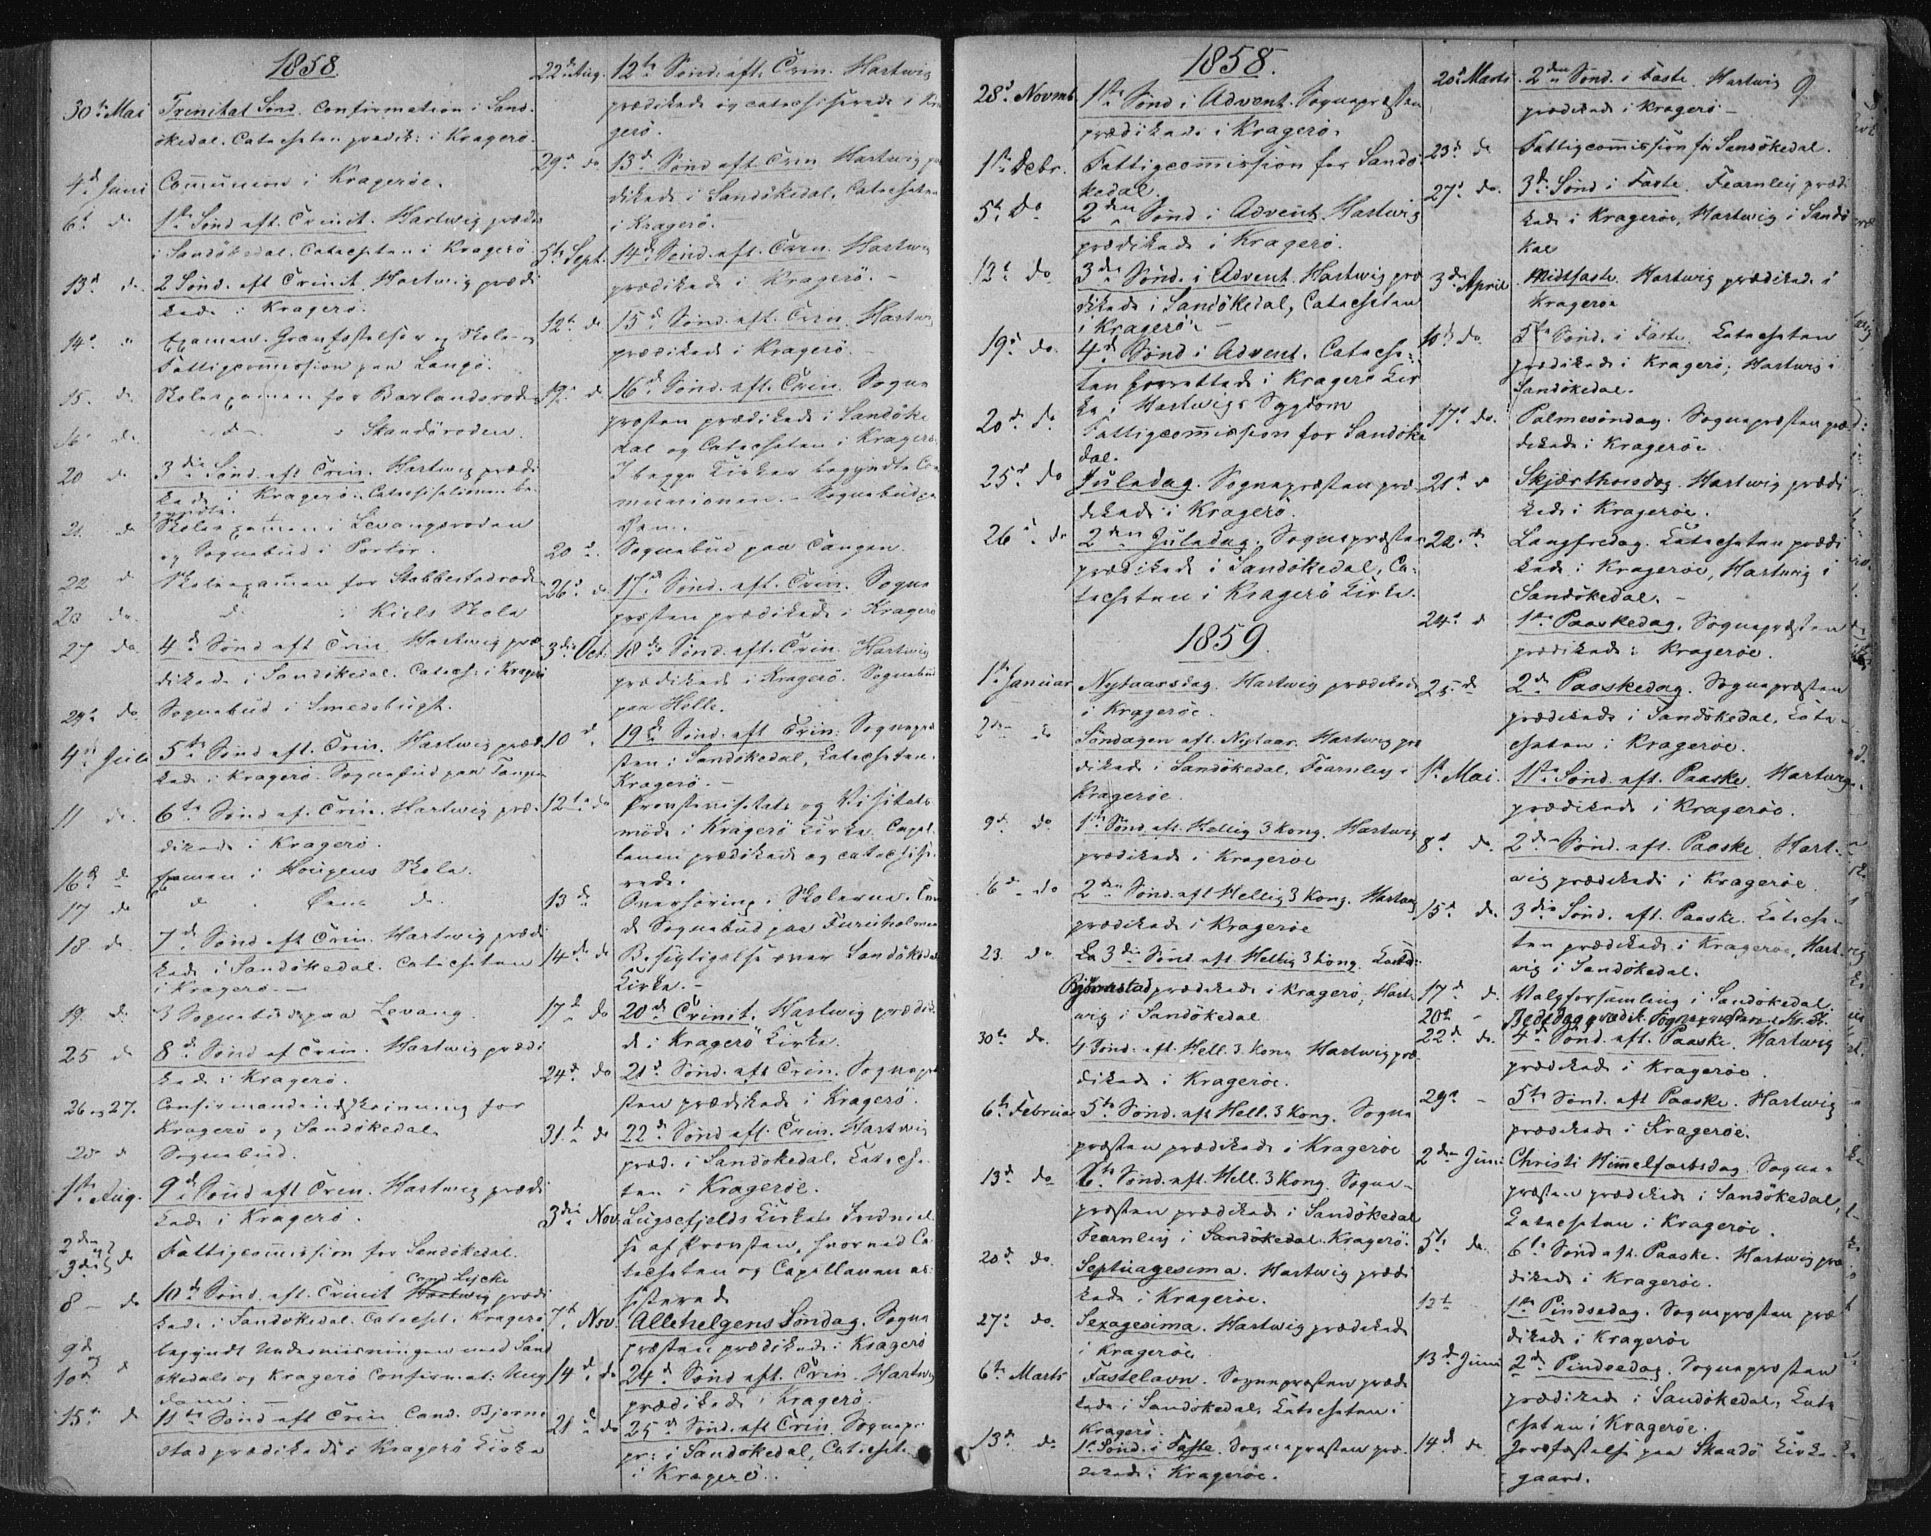 1858.
30te Mai Trinitat Sönd. Confirmation i Sand-
ökedal. Catecheten prædik: i Kragerö.
4d Juni Communion i Kragerøe.
6t do 1ste Sönd. aft. Trinit. Hartwig præd:
i Sandökedal. Catecheten i Kragerö
13d do. 2 Sönd. aft Trinit. Hartwig prædi
kede i Kragerö.
14d " Examen, Grænfæstelser og Skole- og
Fattigcommission paa Langö.
15. do. Skoleexamen for Barlandsroden
16 do. - d - " Skandöroden.
20 do. 3die Sönd aft Trin. Hartwig prædi
kede i Kragerö. Catechisationen be-
gyndte.
21. do Skoleexamen i Levangsroden
og Sognebud i Portör.
22 d Skoleexamen for Stabbestadroden
23 do. d " Kiels Skole
27 do. 4d Sönd aft Trin. Hartwig præ
dikede i Sandökedal. Catech: i Kragerö
29d do. Sognebud i Smedsbugt.
4d Juli 5te Sönd aft. Trin. Hartwig prædi
kede i Kragerö. Sognebud paa Tangen
11 do. 6te Sönd af. Trin. Hartwig præ-
dikede i Kragerö.
16d d Examen i Hougens Skole.
17 do d " d.
18 do. 7d Sönd aft Trin. Hartwig prædi
kede i Sandökedal. Catecheten
i Kragerö. —
19. do. 3 Sognebud paa Levang.
25 do 8d Sönd af Trin. Hartwig prædi
kede i Kragerö.
26 og 27. Confirmandindskrivning for
Kragerö og Sandökedal.
28 d Sognebud.
1ste Aug. 9d Sönd aft Trin. Hartwig prædi
kede i Kragerö.
2den og
3die d Fattigcommission for Sandökedal.
8 - do 10d Sönd. aft. Trinit Hartwig Cand Lycke prædi
kede i Sandökedal. Catechet. i Kragerö
9d og begyndt Underviisningen med Sand
10d d ökedals og Kragerö Confirmat: Ung
dom. —
15d d 11te Sönd aft Trin. Cand. Bjerne
stad prædikede i Kragerö Kirke
22d Aug. 12te Sönd. aft. Trin. Hartwig
prædikede og catechiserede i Kra
gerö.
29d do 13d Sönd aft Trin Hartwig præ
dikede i Sandökedal, Catecheten
i Kragerö.
5te Sept. 14d Sönd. aft. Tren. Hartwig
prædikede i Kragerö. —
12te do 15d Sönd. aft. Tren. Hartwig
prædikede i Kragerö. —
19de do 16d Sönd. aft. Trin. Sogne
præsten prædikede i Sandöke
dal og Catecheten i Kragerö.
I begge Kirker begyndte Com
munionen. — Sognebud paa
20d Sognebud paa Tangen.
26d do 17d Sönd. aft. Trin. Sogne
præsten prædikede i Kragerö
3die Oct. 18de Sönd. aft. Trin. Hartwig
prædikede i Kragerö. Sognebud
paa Helle.
10d 19d Sönd. aft Trin. Sognepræ
sten i Sandökedal, Catecheten i
Kragerö. —
12te do Provstevisitats og Visitats
möde i Kragerö Kirke. Capel
lanen prædikede og catechise-
rede.
13de Overhöring i Skolerne.
d Sognebud paa Furuholmen
14de do Besigtigelse over Sandökedal
Kirke. —
17d do 20d Trinit. Hartwig prædike
de i Kragerö Kirke.
24d do 21d Sönd. aft Trin. Sognepræ
sten prædikede i Kragerö.
31d do 22d Sönd aft. Trin. Hartwig
præd. i Sandökedal. Cateche
ten i Kragerøe.
3die Nov. Lugsefjelds Kirkes Indviel
se af Provsten, hvorved Ca
techeten og Capellanen as-
sisterede
7d. Nov. Allehelgens Söndag. Sogne
præsten prædikede i Kragerö
14d do 24d Sönd aft. Trin. Hartwig
prædikede i Kragerö.
21d do 25d Sönd. aft Trin. Sognepr
pr: i Sandökedal, Catechet.
i Kragerö.
1858. 9
28d Novmb. 1ste Sönd i Advent. Sognepræsten
prædikede i Kragerö.
1ste Decbr. Fattigcommission for Sandö
kedal.
5te Do 2den Sönd i Advent. Hartwig
prædikede i Kragerö.
12t do 3die Sönd. i Advent. Hartwig præ
dikede i Sandökedal, Catecheten
i Kragerö. —
19d do. 4d Sönd i Advent. Cateche-
ten forrettede i Kragerö Kir
ke i Hartwigs Sygdom
20d do Fattigcommission for Sandöke
dal.
25d do Juledag. Sognepræsten præ
dikede i Kragerö.
26d do 2den Juledag. Sognepræsten
prædikede i Sandökedal, Ca-
techeten i Kragerö Kirke.
1859.
1ste Januar Nytaarsdag. Hartwig prædikede
i Kragerøe.
2den do Söndagen aft. Nytaar. Hartwig præ
dikede i Sandökedal, Fearnley i
Kragerøe.
9d do 1ste Sönd. aft. Hellig 3 Kong. Hartwig
prædikede i Kragerøe
16d do 2den Sönd. aft Hellig 3 Kong. Hartwig
prædikede i Kragerøe
23. do 3die Sönd. aft. Hellig 3 Kong. Cand.
Bjørnestad prædikede i Kragerö, Hart-
wig i Sandökedal
30te do. 4 Sönd. aft. Hell. 3 Kong Hartwig præ
dikede i Kragerøe.
6te Februar 5te Sönd. aft Hell. 3 Kong. Sogne
præsten prædikede i Kragerøe
13d do 6te Sönd. aft. Hell. 3 Kong. Sogne-
præsten prædikede i Sandökedal
Fearnley i Sandökedal Kragerö.
20d do. Septuagesima. Hartwig prædi
kede i Kragerøe.
27d do. Sexagesima. Hartwig prædikede
i Kragerøe
6te Marts Fastelavn. Sognepræsten prædi
kede i Sandökedal, Catecheten i
Kragerö.
13d do 1ste Sönd. i Faste. Sognepræsten præ-
dikede i Kragerøe.
20d Marts 2den Sönd. i Faste. Hartwig
prædikede i Kragerö —
23d do Fattigcommission for Sandökedal.
27d do. 3d Sönd i Faste. Fearnley prædi
kede i Kragerøe, Hartwig i Sandö
kae
3die April Midtfaste. Hartwig prædikede i
Kragerøe
10d do. 5te Sönd. i Faste. Catecheten
prædikede i Kragerö, Hartwig i
Sandökedal.
17d do. Palmesöndag. Sognepræsten præ
dikede i Kragerøe.
21d d Skjærthorsdag. Hartwig prædi
kede i Kragerøe.
22. d Langfredag. Catecheten prædi
kede i Kragerøe, Hartwig i
Sandökedal. —
24d d 1ste Paaskedag. Sognepræsten
prædikede i Kragerøe.
25d 2d Paaskedag. Sognepræsten
prædikede i Sandökedal, Cate-
cheten i Kragerøe.
1ste Mai. 1ste Sönd. aft. Paaske. Hartwig
prædikede i Kragerøe.
8d do. 2den Sönd. aft. Paaske. Hart-
wig prædikede i Kragerøe.
15d do. 3die Sönd. aft. Paaske. Cateche-
ten prædikede i Kragerøe, Hart-
wig i Sandökedal.
17d d. Valgforsamling i Sandökedal
20de - Bededag prædik. Sognepræsten i Kr. K.
22d do. 4d Sönd. aft. Paaske. Hartwig
prædikede i Kragerøe.
29d - 5te Sönd. aft Paaske. Hartwig
prædikede i Kragerøe.
2den Juni Christi Himmelfartsdag. Sogne-
præsten prædikede i Sandökedal,
Catecheten i Kragerøe.
5te do. 6te Sönd aft. Paaske. Hartwig præ
dikede i Kragerøe.
12te 1ste Pindsedag. Sognepræsten præ
dikede i Kragerøe
13d Juni 2d Pindsedag. Sognepræsten
prædikede i Sandökedal, Cate
cheten i Kragerøe.
14d do Jordfæstelse paa Skaadö Kirke-
gaard.